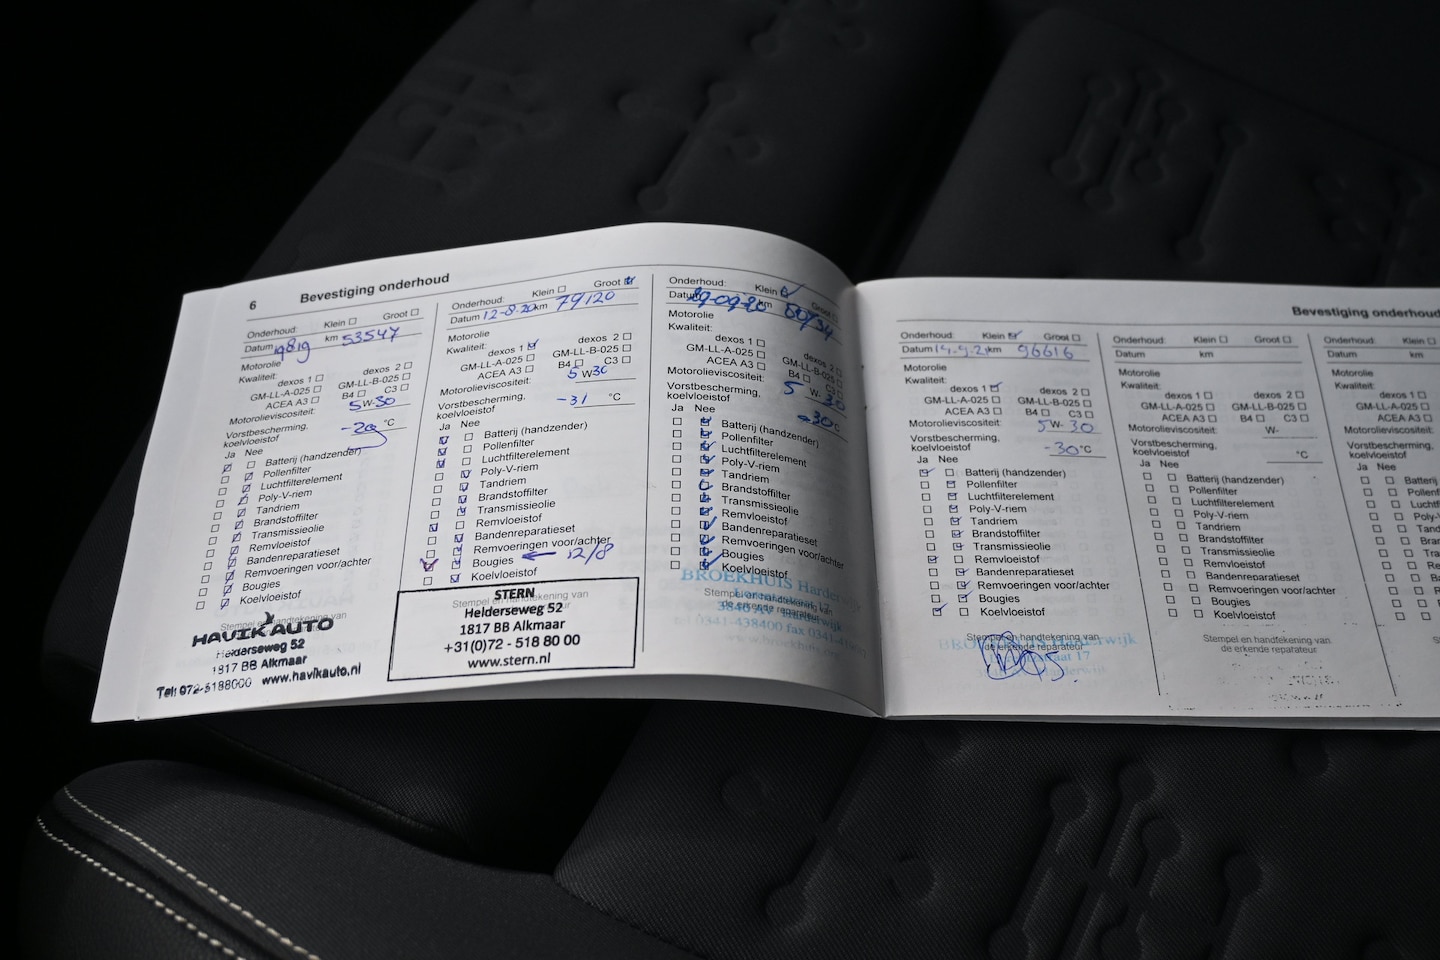 6 Bevestiging onderhoud
Onderhoud: Klein Groot
Datum 19819 km 53547
Motorolie
Kwaliteit:
dexos 1 dexos 2
GM-LL-A-025 GM-LL-B-025
ACEA A3 B4 C3
Motorolieviscositeit: 5 W- 30
Vorstbescherming,
koelvloeistof -29 °C
Ja Nee
Batterij (handzender)
Pollenfilter
Luchtfilterelement
Poly-V-riem
Tandriem
Brandstoffilter
Transmissieolie
Remvloeistof
Bandenreparatieset
Remvoeringen voor/achter
Bougies
Koelvloeistof
Stempel en handtekening van
HAVIK AUTO
Helderseweg 52
1817 BB Alkmaar
Tel: 072-5188000 www.havikauto.nl
Onderhoud: Klein Groot
Datum 12-8-20 km 79120
Motorolie
Kwaliteit:
dexos 1 dexos 2
GM-LL-A-025 GM-LL-B-025
ACEA A3 B4 C3
Motorolieviscositeit: 5 W 30
Vorstbescherming,
koelvloeistof -31 °C
Ja Nee
Batterij (handzender)
Pollenfilter
Luchtfilterelement
Poly-V-riem
Tandriem
Brandstoffilter
Transmissieolie
Remvloeistof
Bandenreparatieset
Remvoeringen voor/achter
Bougies 12/8
Koelvloeistof
Stempel en handtekening van
STERN
Helderseweg 52
1817 BB Alkmaar
+31(0)72 - 518 80 00
www.stern.nl
Onderhoud: Klein Groot
Datum km
Motorolie
Kwaliteit:
dexos 1 dexos 2
GM-LL-A-025 GM-LL-B-025
ACEA A3 B4 C3
Motorolieviscositeit: 5 W- 30
Vorstbescherming,
koelvloeistof -30 °C
Ja Nee
Batterij (handzender)
Pollenfilter
Luchtfilterelement
Poly-V-riem
Tandriem
Brandstoffilter
Transmissieolie
Remvloeistof
Bandenreparatieset
Remvoeringen voor/achter
Bougies
Koelvloeistof
BROEKHUIS Harderwijk
Stempel en handtekening van
de erkende reparateur
0341-438400 fax
Bevestiging onderhoud
Onderhoud: Klein Groot
Datum 14.9.21 km 96616
Motorolie
Kwaliteit:
dexos 1 dexos 2
GM-LL-A-025 GM-LL-B-025
ACEA A3 B4 C3
Motorolieviscositeit: 5 W- 30
Vorstbescherming,
koelvloeistof -30 °C
Ja Nee
Batterij (handzender)
Pollenfilter
Luchtfilterelement
Poly-V-riem
Tandriem
Brandstoffilter
Transmissieolie
Remvloeistof
Bandenreparatieset
Remvoeringen voor/achter
Bougies
Koelvloeistof
Stempel en handtekening van
de erkende reparateur
Onderhoud: Klein Groot
Datum km
Motorolie
Kwaliteit:
dexos 1 dexos 2
GM-LL-A-025 GM-LL-B-025
ACEA A3 B4 C3
Motorolieviscositeit: W-
Vorstbescherming,
koelvloeistof °C
Ja Nee
Batterij (handzender)
Pollenfilter
Luchtfilterelement
Poly-V-riem
Tandriem
Brandstoffilter
Transmissieolie
Remvloeistof
Bandenreparatieset
Remvoeringen voor/achter
Bougies
Koelvloeistof
Stempel en handtekening van
de erkende reparateur
Onderhoud: Klein
Datum km
Motorolie
Kwaliteit:
dexos 1
GM-LL-A-025
ACEA A3
Motorolieviscositeit:
Vorstbescherming,
koelvloeistof
Ja Nee